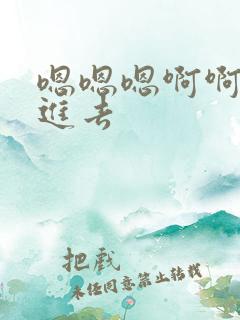 嗯嗯嗯啊啊
进去
把戲
未经同意禁止转载